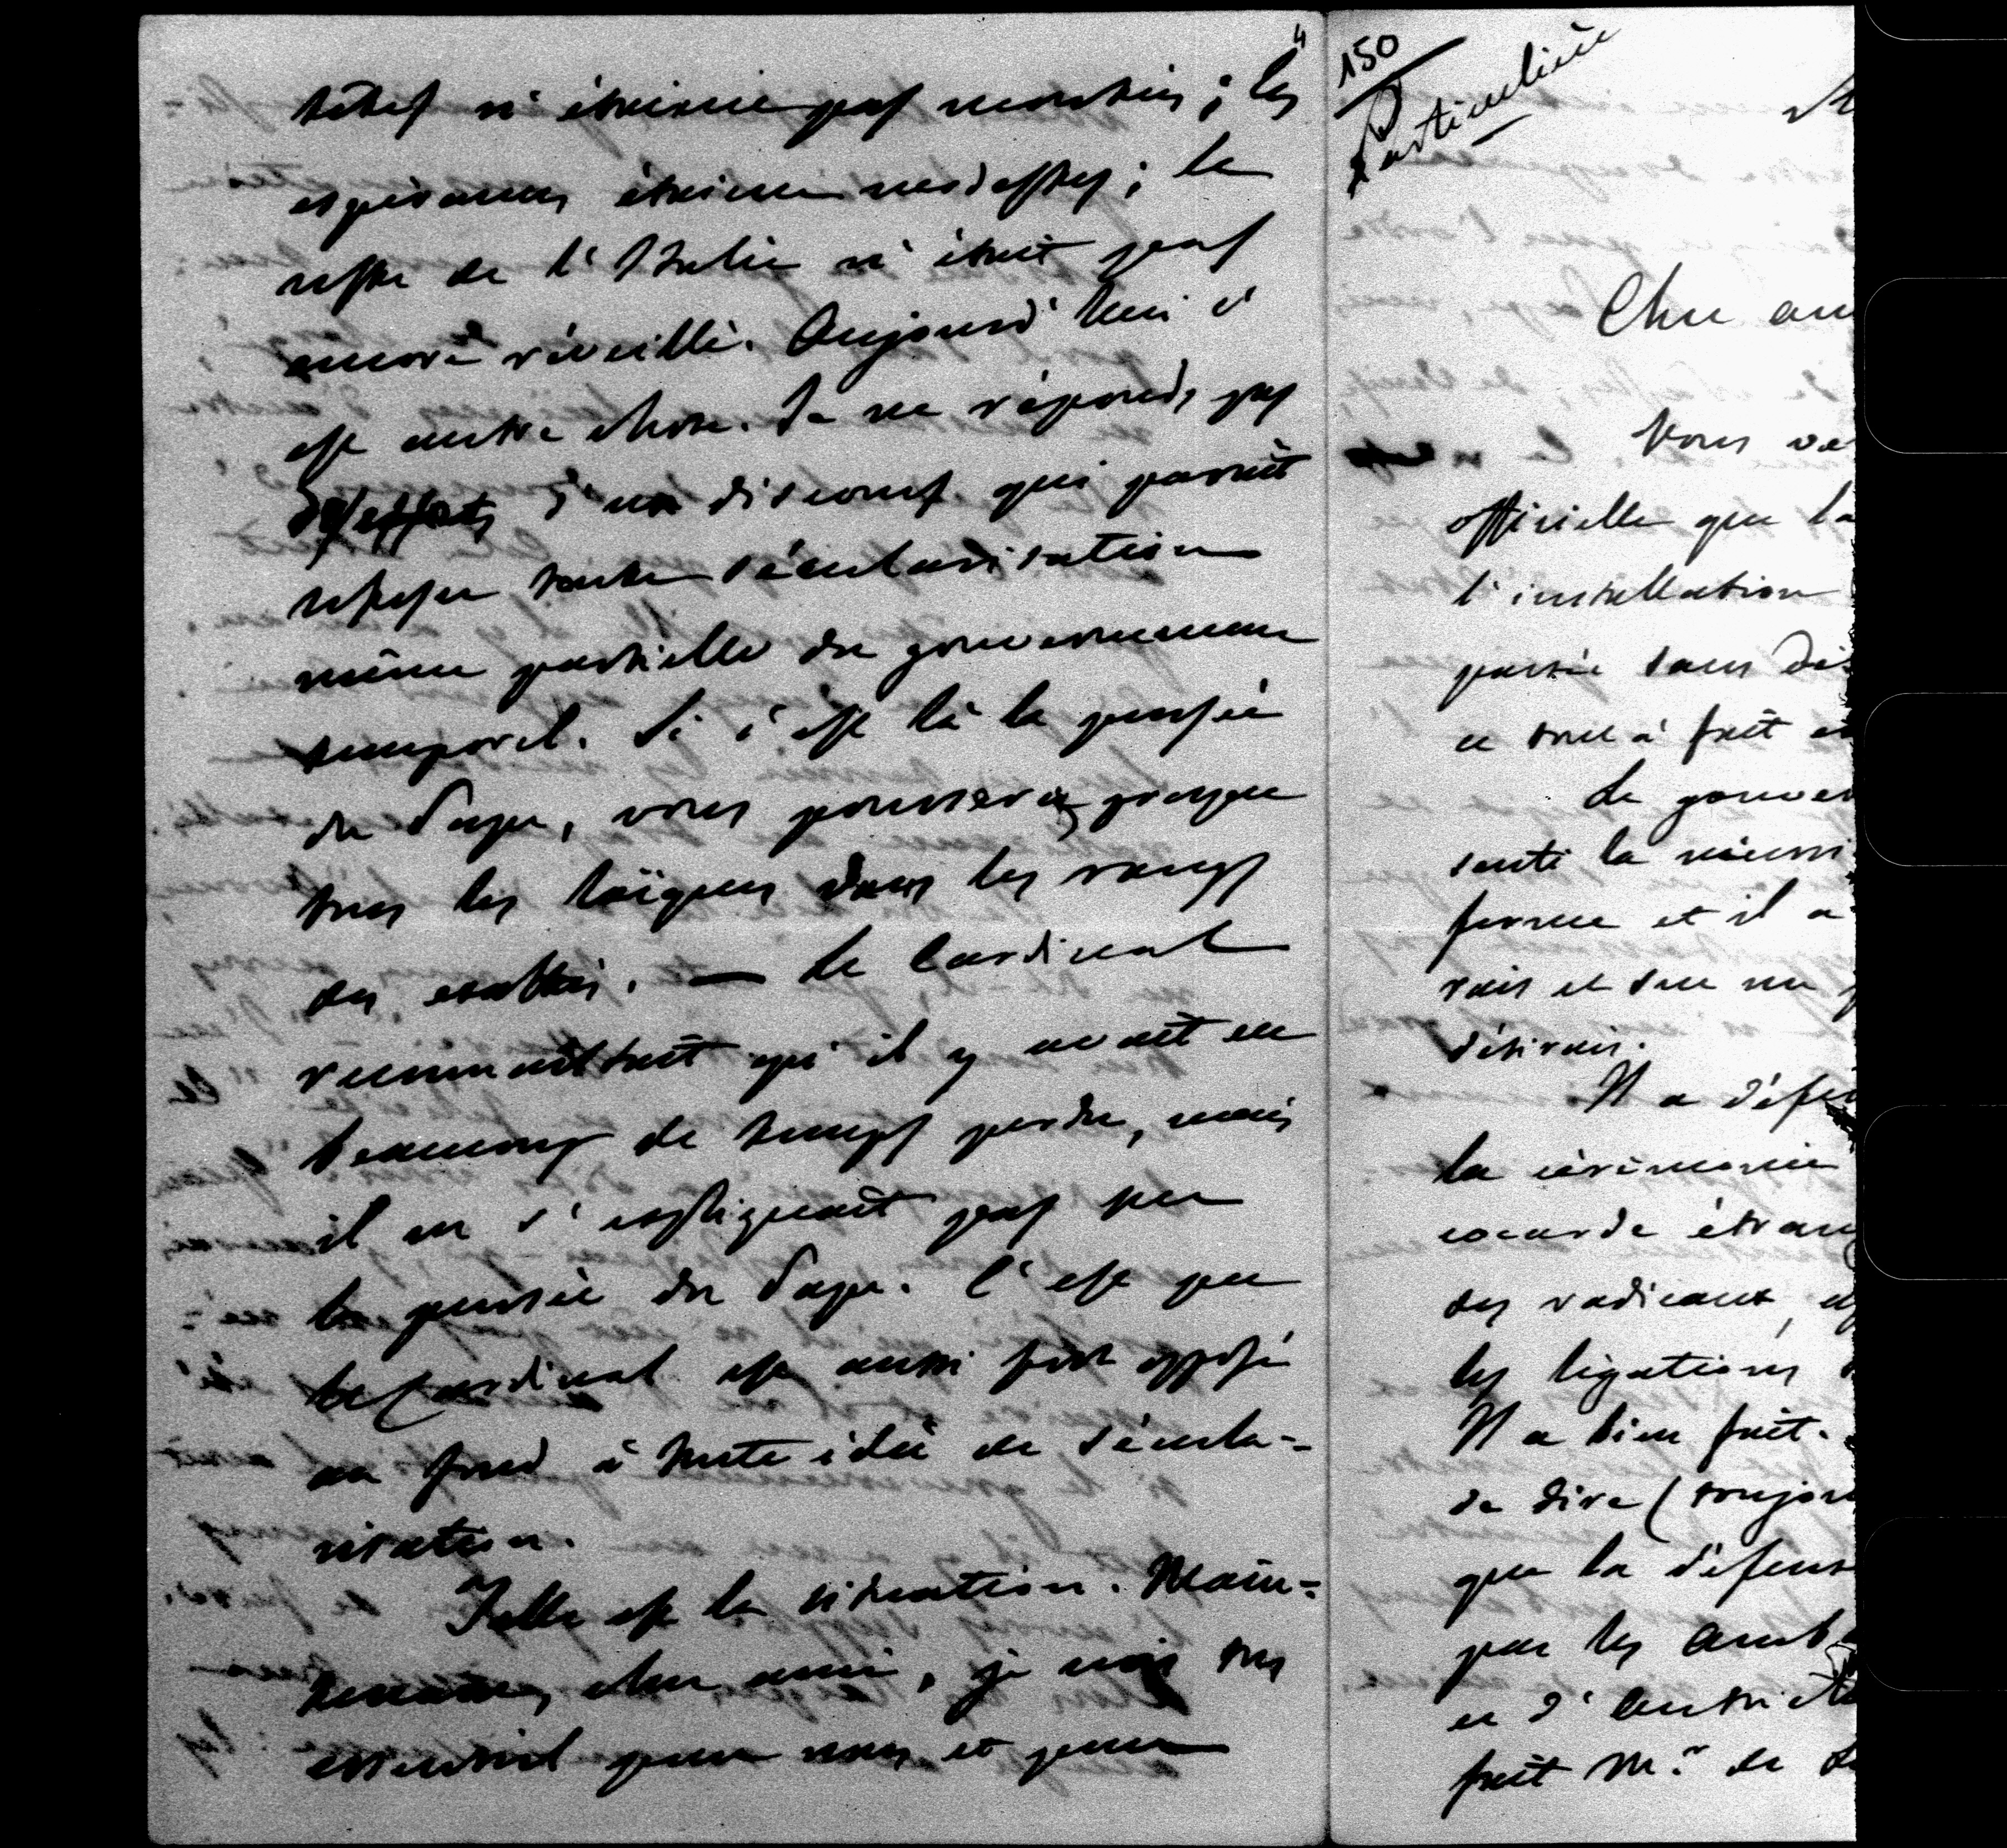 4
têtes n'étaient pas montées ; les
espérances étaient modestes ; le
reste de l'Italie n'était pas
encore réveillé. Aujourd'hui c'
est autre chose. Je ne réponds pas
des effets d'un discours qui paraît
refuser toute sécularisation
même partielle du gouvernement
temporel. Si c'est là la pensée
du Pape, vous pousserez presque
tous les laïques dans les rangs
des exaltés. — Le Cardinal
reconnaissait qu'il y avait eu
beaucoup de temps perdu, mais
il ne s'expliquait pas sur
la pensée du Pape. C'est que
le Cardinal est aussi fort opposé
au fond à toute idée de sécula-
risation.
Telle est la situation. Main-
tenant, cher ami, je vois
essentiel pour nous et pour
150
Particulière
Cher am
Vous ve
officielle que la
l'installation
passée sans di
ce tout à fait
Le gouver
senti la nécessi
ferme et il a
rais et tel que
désirais.
Il a défen
la cérémonie
cocarde étran
des radicaux,
les légations
Il a bien fait.
de dire (toujours
que la défense
par les amb
et d'Autriche
fait Mr. de